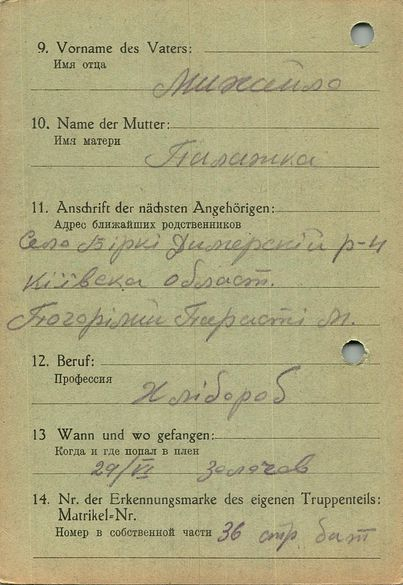 9. Vorname des Vaters:
Имя отца
Михайло
10. Name der Mutter:
Имя матери
Палажка
11. Anschrift der nächsten Angehörigen:
Адрес ближайших родственников
Село Біркі Димерскій р-н
Київска област.
Погорілий Парасті М.
12. Beruf:
Профессия
Хлібороб
13 Wann und wo gefangen:
Когда и где попал в плен
29/VI золочев
14. Nr. der Erkennungsmarke des eigenen Truppenteils:
Matrikel=Nr.
Номер в собственной части 36 стр бат